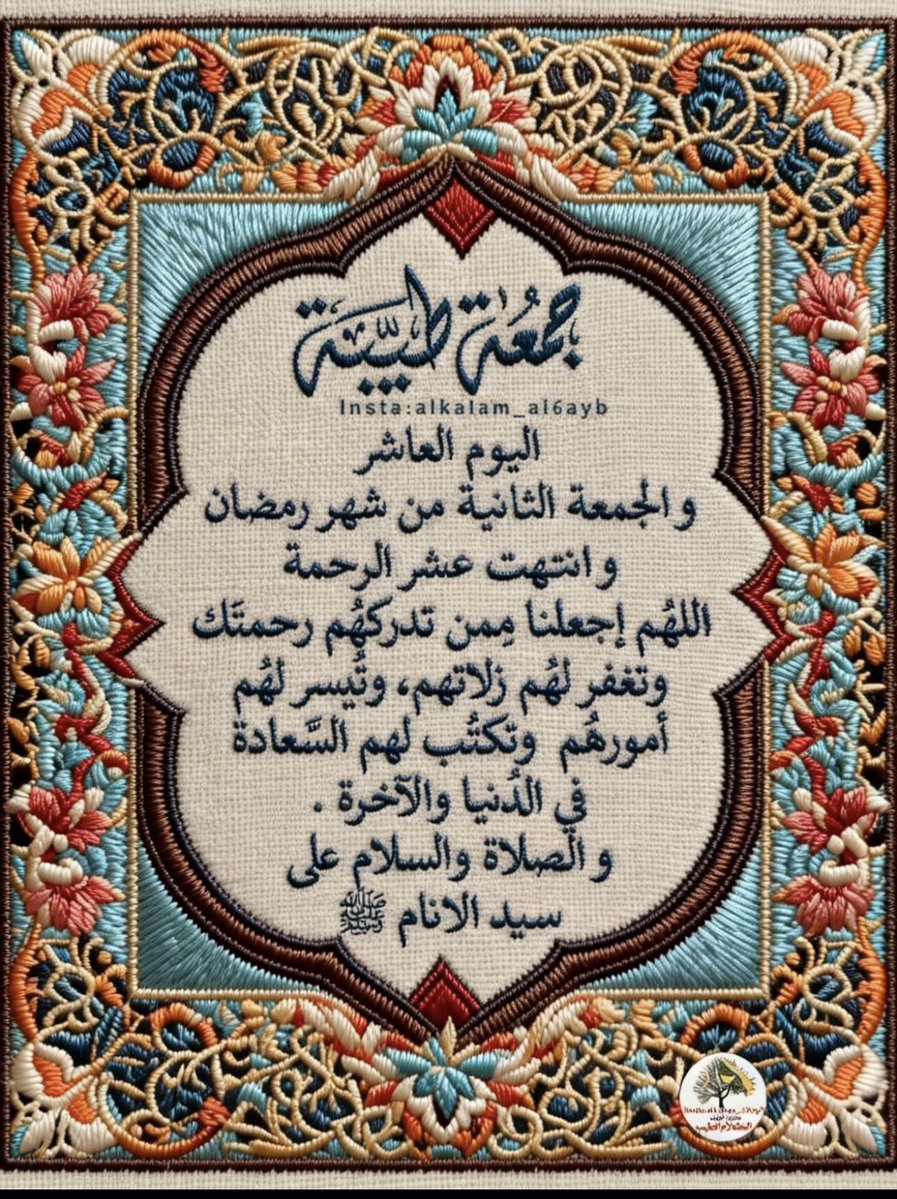 جمعة طيبة
Insta:alkalam_al6ayb
اليوم العاشر
و الجمعة الثانية من شهر رمضان
و انتهت عشر الرحمة
اللهُم إجعلنا مِمن تدركهُم رحمتَك
وتغفر لهُم زلاتهم، وتُيسر لهُم
أمورهُم وتكتُب لهم السَّعادة
في الدُنيا والآخرة .
و الصلاة والسلام على
سيد الانام ﷺ